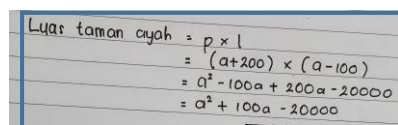 Luas taman ayah = p × l
= (a+200) × (a-100)
= a² - 100a + 200a - 20000
= a² + 100a - 20000